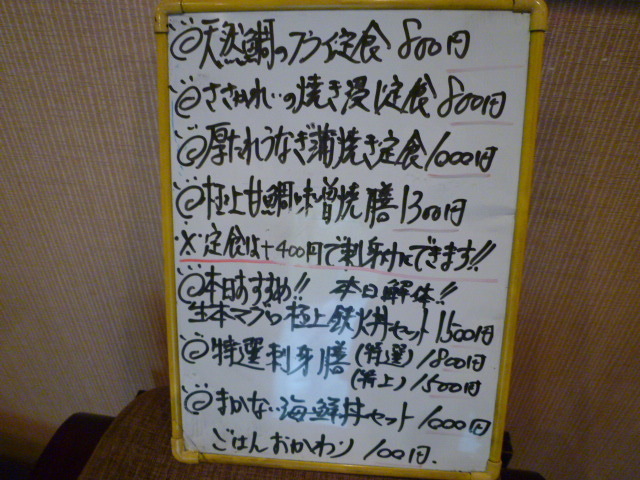 ◎天然鯛のフライ定食 800円
◎ささがれいの焼き浸し定食 800円
◎厚たれうなぎ蒲焼き定食 1000円
◎極上甘鯛味噌焼膳 1300円
※定食は+400円で刺身付にできます!!
◎本日おすすめ!! 本日解体!!
生本マグロ極上鉄火丼セット 1500円
◎特選刺身膳(特選) 1800円
(特上) 1500円
◎まかない海鮮丼セット 1000円
ごはんおかわり 100円.